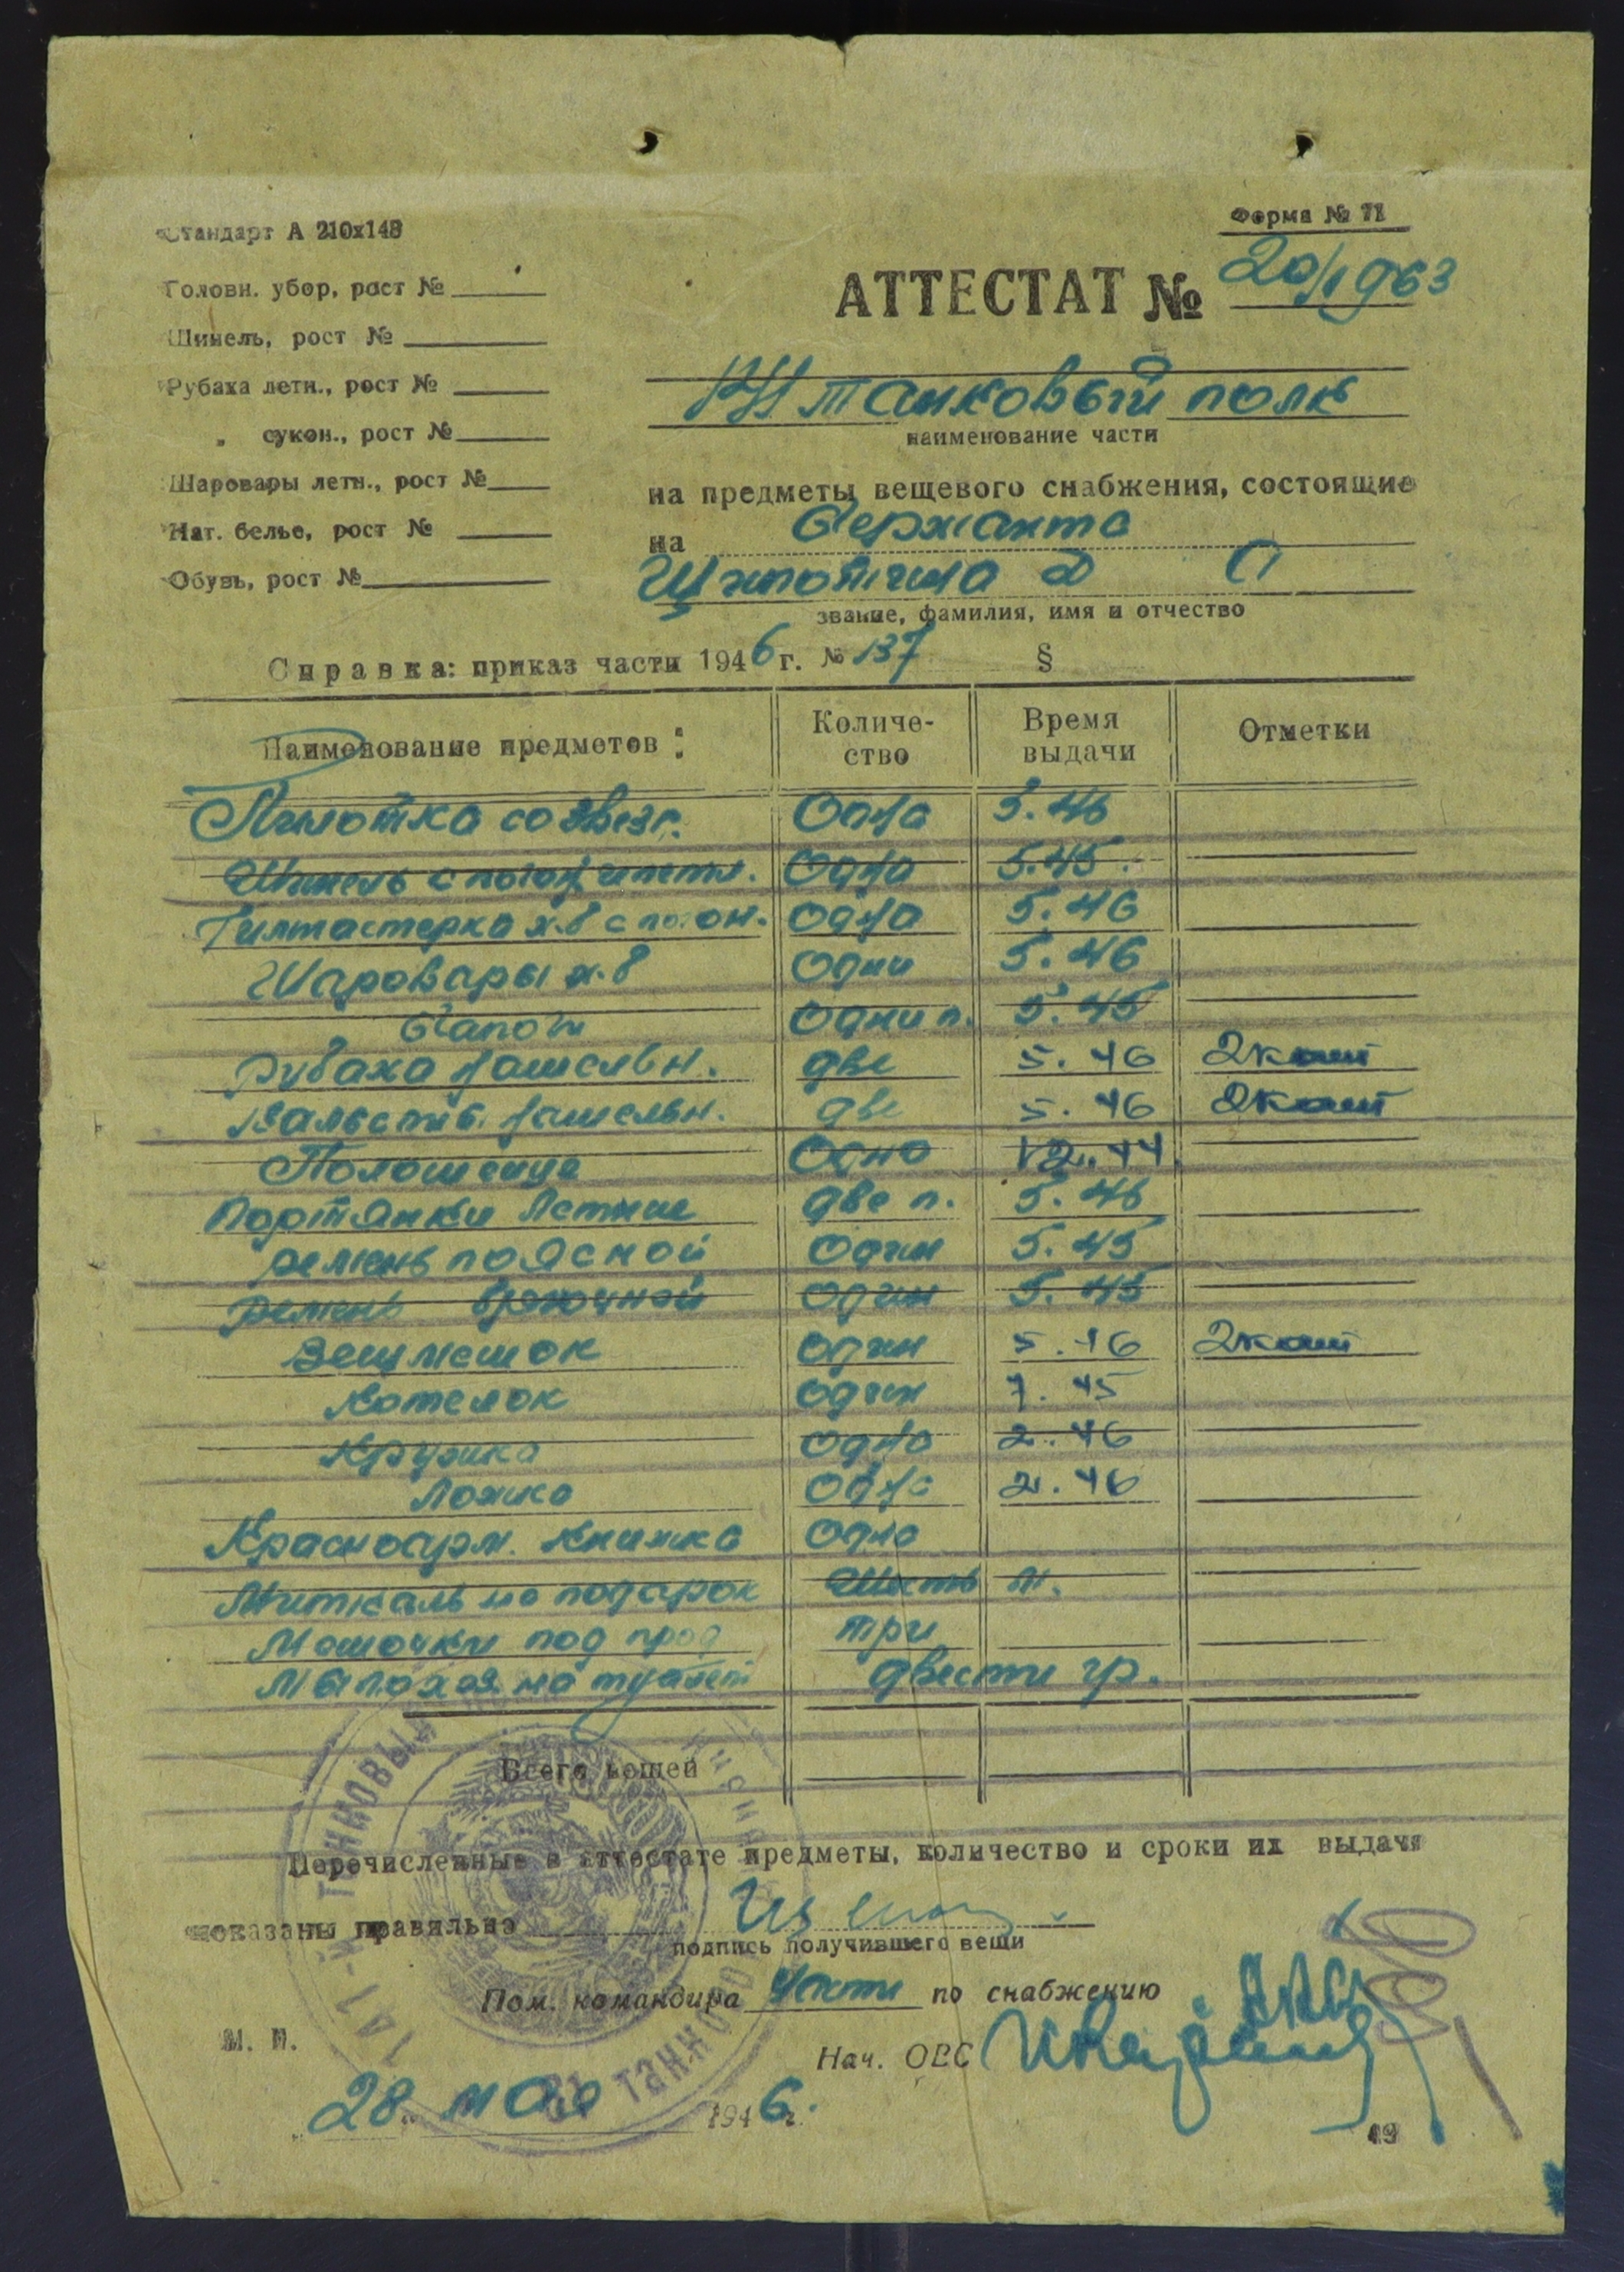 Стандарт А 210х148
Форма № 71
Головн. убор, рост №
Шинель, рост №
Рубаха летн., рост №
„ сукон., рост №
Шаровары летн., рост №
Нат. белье, рост №
Обувь, рост №
АТТЕСТАТ № 20/1963
141 танковый полк
наименование части
на предметы вещевого снабжения, состоящие
на Сержанта
Д П
звание, фамилия, имя и отчество
Справка: приказ части 1946 г. № 137 §
Наименование предметов: Количество Время выдачи Отметки
Пилотка со звезд. Одна 5.46
Шинель с погон и петл. Одна 5.45.
Гимнастерка х.б с погон. Одна 5.46
Шаровары х.б Одни 5.46
Сапоги Одни п. 5.45
Рубаха нательн. две 5.46 2 кат
Кальсоны нательн. две 5.46 2 кат
Полотенце Одно 12.44
Портянки Летние две п. 5.46
Ремень поясной Один 5.45
Ремень брючной Один 5.45
Вещмешок Один 5.46 2 кат
Котелок один 7.45
Кружка одна 2.46
Ложка Одна 2.46
Красноарм. книжка Одна
Миткаль на подарок Шесть м.
Мешочки под прод три
Мыло хоз. на туалет двести гр.
Всего вещей
Перечисленные в аттестате предметы, количество и сроки их выдачи
показаны правильно
подпись получившего вещи
Пом. командира части по снабжению
М. П.
Нач. ОВС
„28" мая 1946 г.
19
141-й танковый